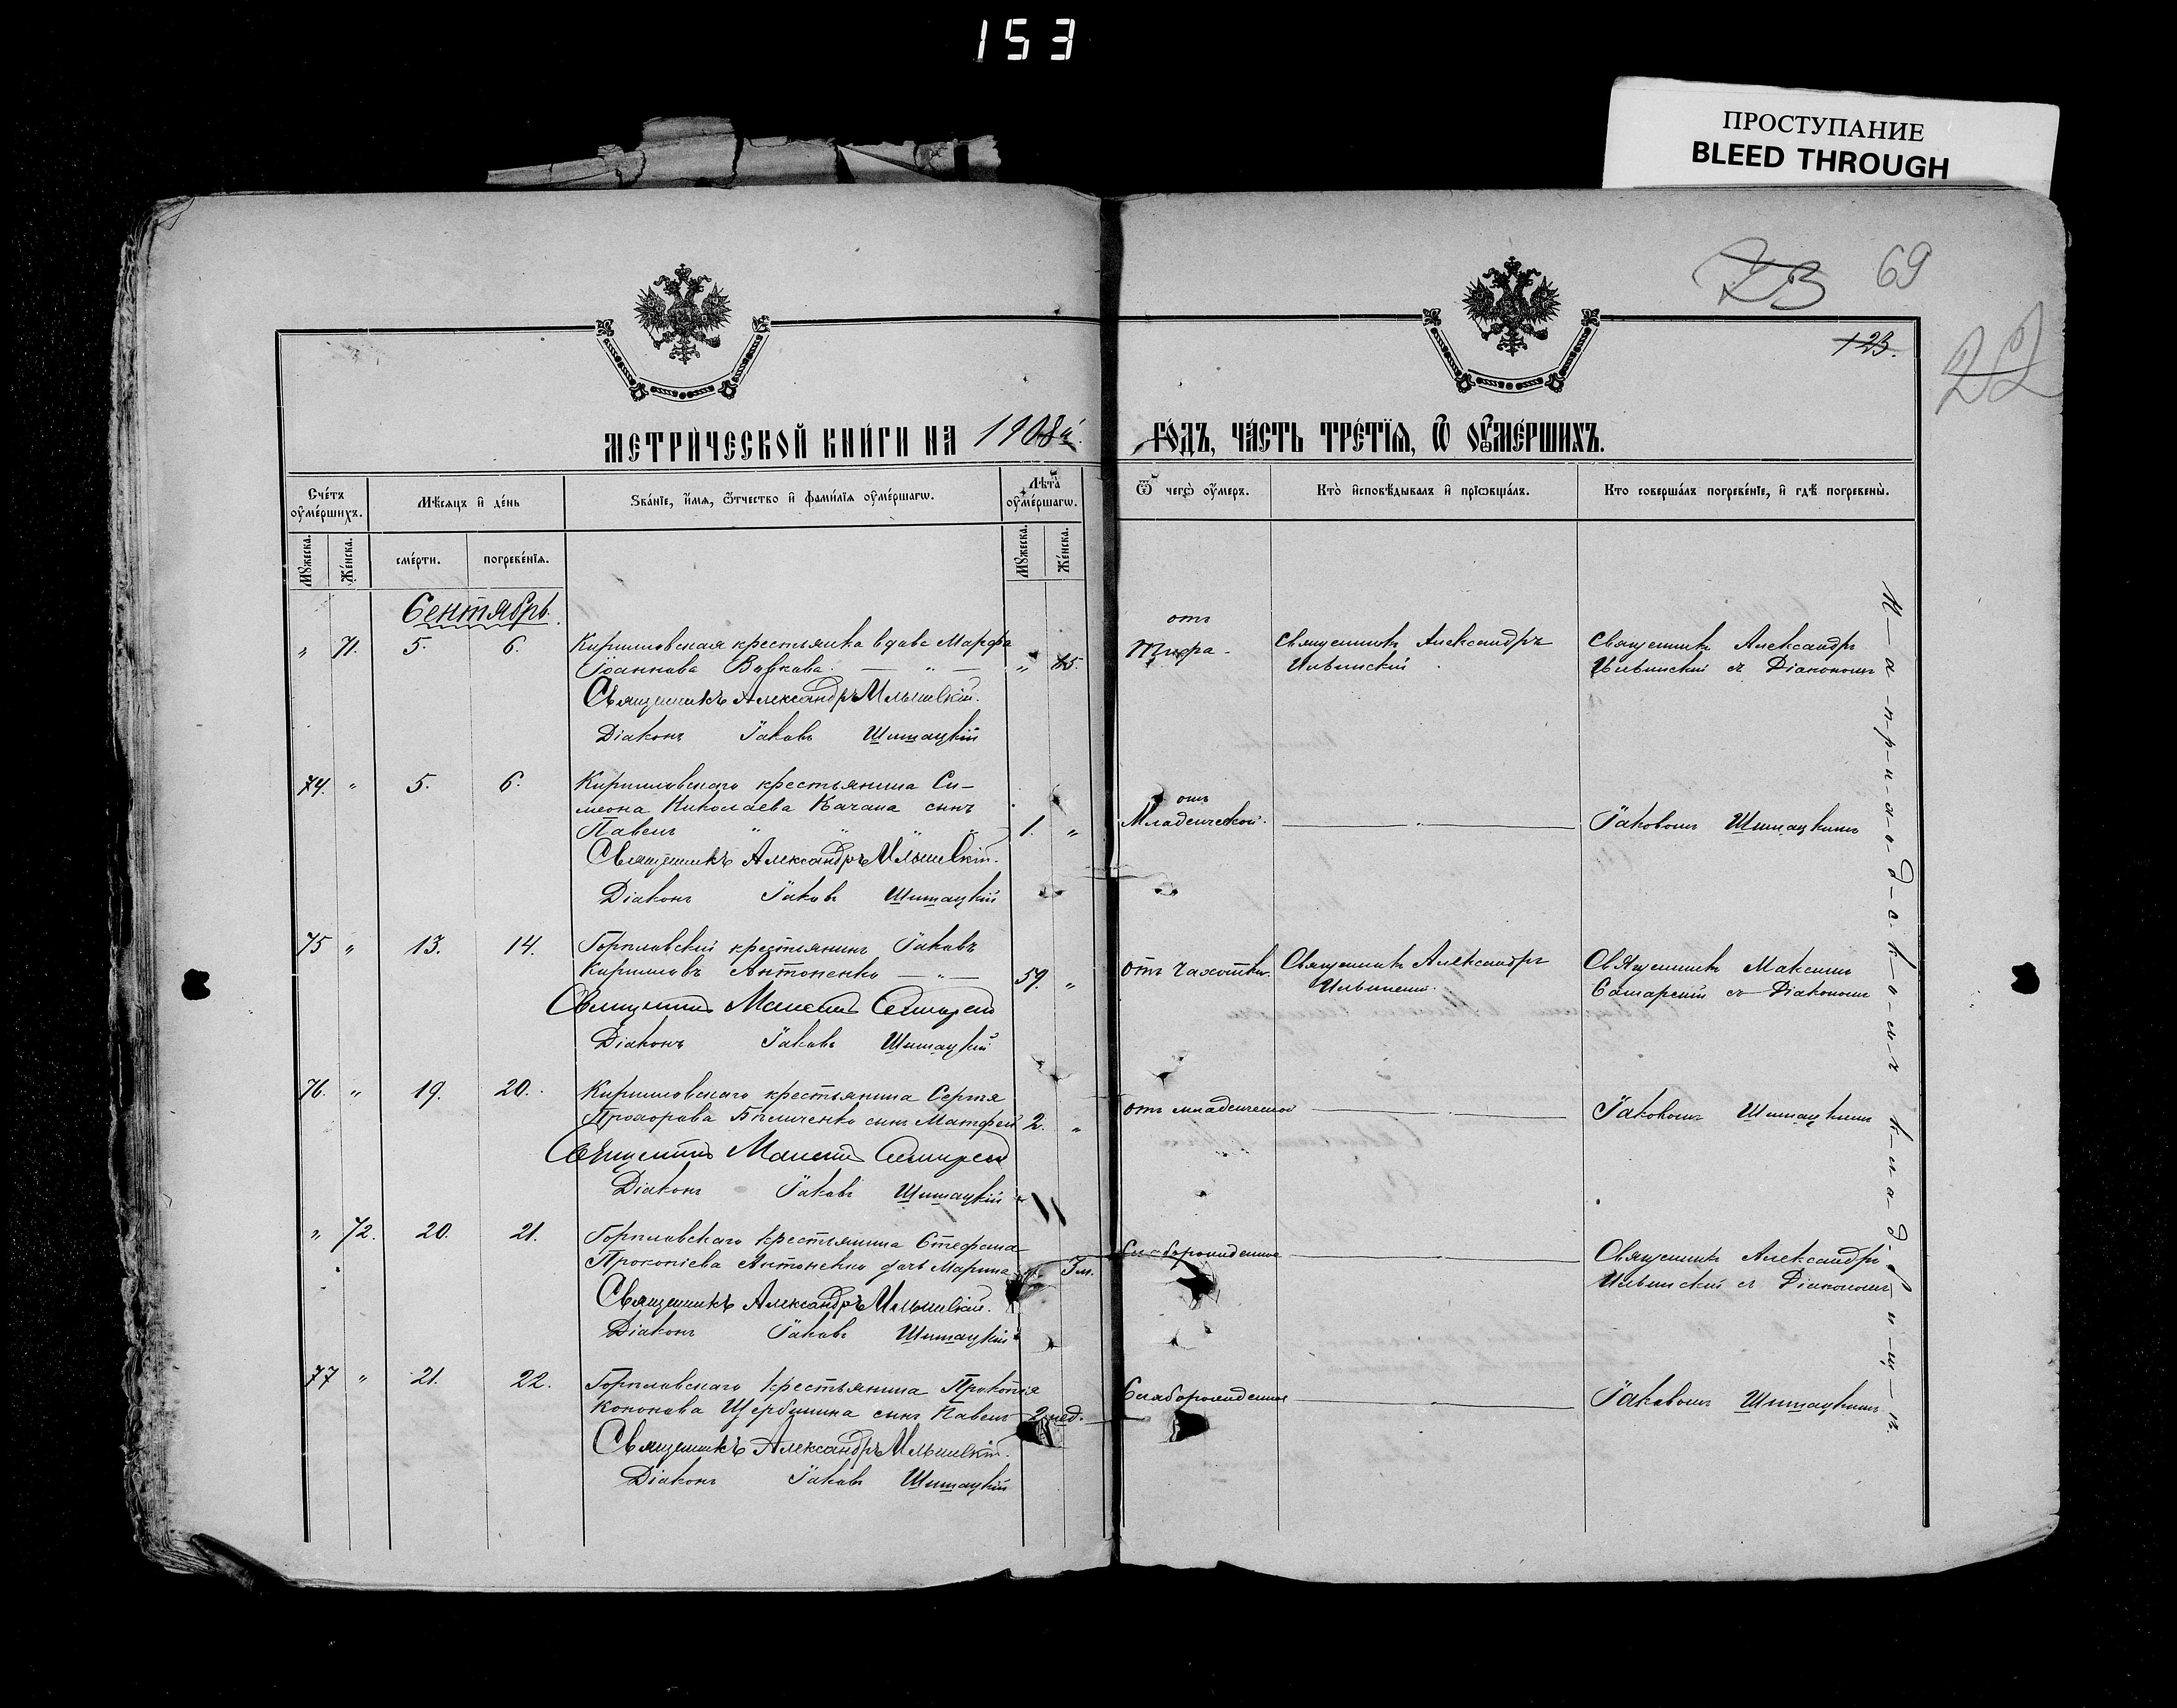 153
ПРОСТУПАНИЕ
BLEED THROUGH
23
69
123.
22
МЕТРИЧЕСКОЙ КНИГИ НА 1908й
ГОДЪ, ЧАСТЬ ТРЕТІЯ, Ѿ ОУМЕРШИХЪ.
Счетъ оумершихъ.
Мѣсяцъ и день
Званіе, имя, ѿтчество и фамилія оумершагѡ.
Лѣта оумершагѡ.
Ѿ чегѡ оумеръ.
Кто исповѣдывалъ и пріѡбщалъ.
Кто совершалъ погребеніе, и гдѣ погребены.
Мужеска.
Женска.
смерти.
погребенія.
Мужеска.
Женска.
Сентябрь.
" 71. 5. 6. Кирилловская крестьянка вдова Марфа
Іоаннова — " — "
Священникъ Александръ Ильинскій.
Діаконъ Іаковъ Шишацкій
отъ
Тифа.
Священникъ Александръ
Ильинскій
Священникъ Александръ
Ильинскій съ Діакономъ
74. " 5. 6. Кирилловскаго крестьянина Си-
меона Николаева Качана сынъ
Павелъ " " 1. "
Священникъ Александръ Ильинскій.
Діаконъ Іаковъ Шишацкій
отъ
Младенческой. — " —
Іаковомъ Шишацкимъ
75 " 13. 14. крестьянинъ Іаковъ
Кирилловъ Антоненко — " — 59. "
Священникъ Максимъ
Діаконъ Іаковъ Шишацкій
отъ Чахотки.
Священникъ Александръ
Ильинскій.
Священникъ Максимъ
Самарскій съ Діакономъ
76. " 19. 20. Кирилловскаго крестьянина Сергія
Прохорова Бѣличенко сынъ Матфей 2. "
Священникъ Максимъ
Діаконъ Іаковъ Шишацкій
отъ младенческой
Іаковомъ Шишацкимъ
" 72. 20. 21. крестьянина Стефана
Прокопіева Антоненко дочь Марина " 3 м.
Священникъ Александръ Ильинскій.
Діаконъ Іаковъ Шишацкій
Слаборожденная
Священникъ Александръ
Ильинскій съ Діакономъ
77 " 21. 22. крестьянина Прокопія
Кононова Щербинина сынъ Павелъ 2 нед.
Священникъ Александръ Ильинскій.
Діаконъ Іаковъ Шишацкій
Слаборожденное
Іаковомъ Шишацкимъ
Н-а п-р-и-х-о-д-с-к-о-м-ъ к-л-а-д-б-и-щ-ѣ.